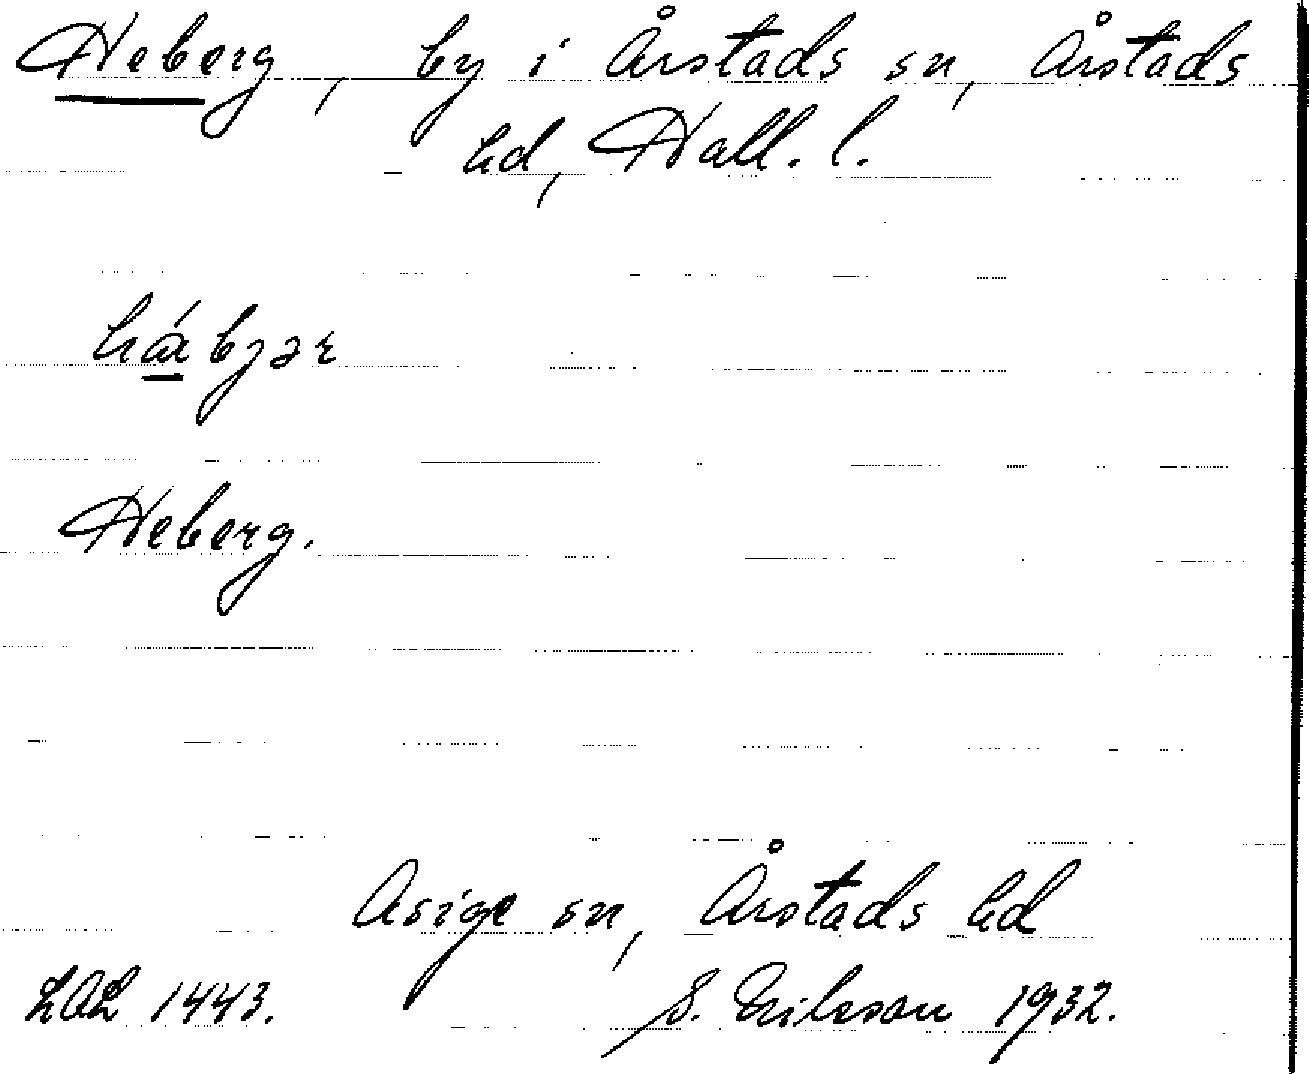 Heberg, by i Årstads sn, Årstads
hd, Hall. l.
Heberg.
Asige sn, Årstads hd
LAL 1443. S. Eriksson 1932.